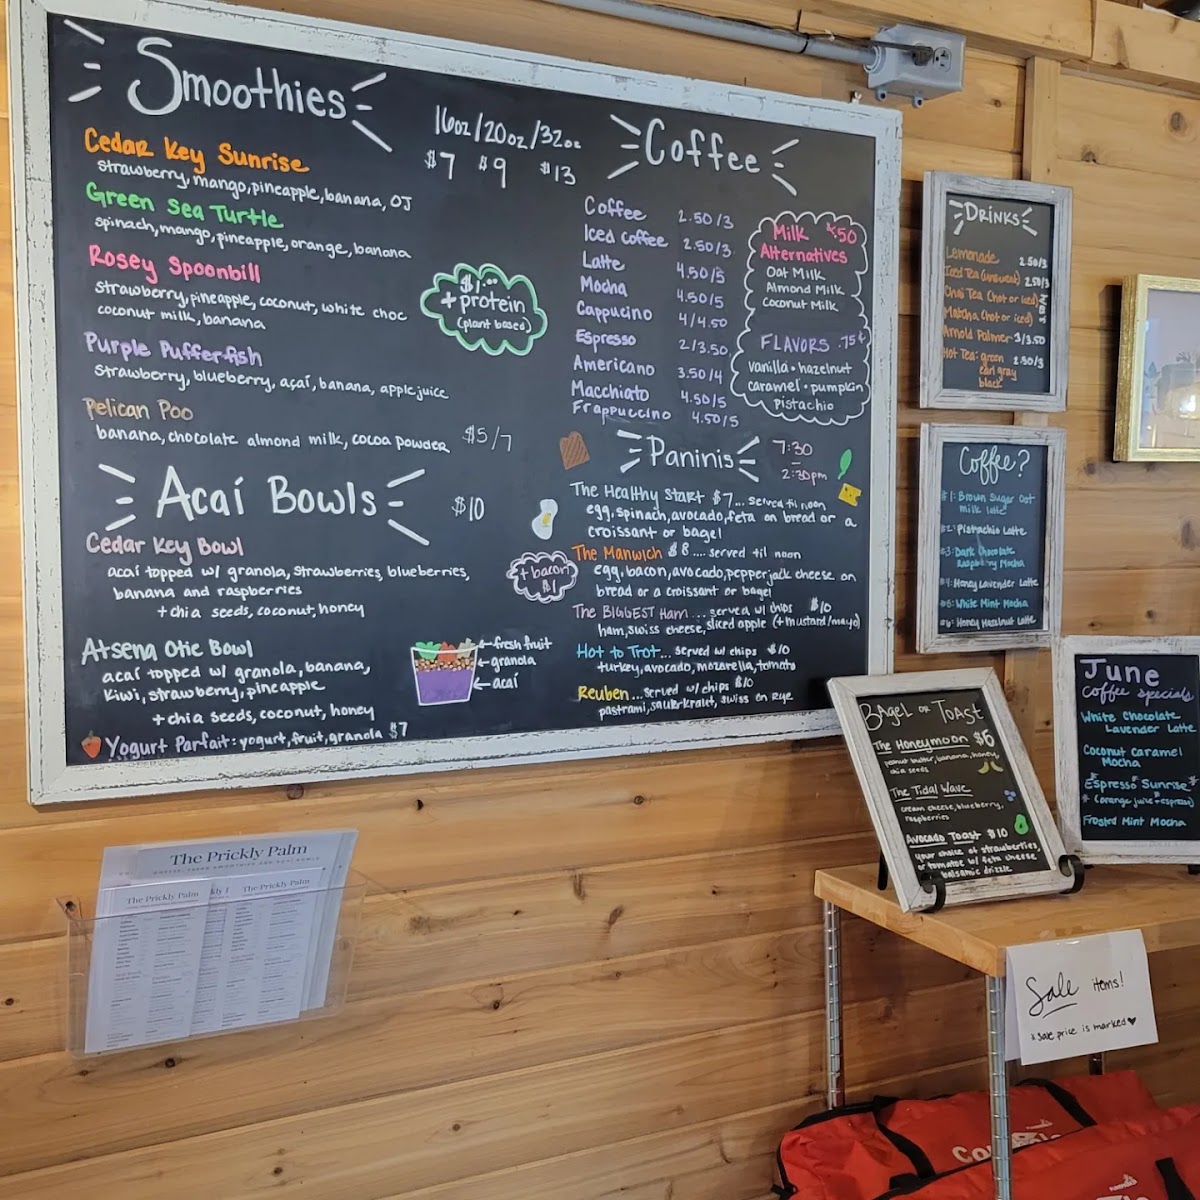 Smoothies
16oz/20oz/32oz
$7 $9 $13
Cedar Key Sunrise
strawberry, mango, pineapple, banana, OJ
Green Sea Turtle
spinach, mango, pineapple, orange, banana
Rosey Spoonbill
strawberry, pineapple, coconut, white choc
coconut milk, banana
$1.00
+ protein
(plant based)
Purple Pufferfish
strawberry, blueberry, açaí, banana, apple juice
Pelican Poo
banana, chocolate almond milk, cocoa powder $5/7
Acaí Bowls $10
Cedar Key Bowl
acaí topped w/ granola, strawberries, blueberries,
banana and raspberries
+ chia seeds, coconut, honey
Atsena Otie Bowl
acaí topped w/ granola, banana,
Kiwi, strawberry, pineapple
+ chia seeds, coconut, honey
fresh fruit
granola
açaí
Yogurt Parfait: yogurt, fruit, granola $7
Coffee
Coffee 2.50/3
Iced Coffee 2.50/3
Latte 4.50/5
Mocha 4.50/5
Cappucino 4/4.50
Espresso 2/3.50
Americano 3.50/4
Macchiato 4.50/5
Frappuccino 4.50/5
Milk .50
Alternatives
Oat Milk
Almond Milk
Coconut Milk
FLAVORS .75¢
vanilla • hazelnut
caramel • pumpkin
pistachio
Paninis
7:30
–
2:30pm
The Healthy Start $7... served til noon
egg, spinach, avocado, feta on bread or a
croissant or bagel
The Manwich $8.... served til noon
egg, bacon, avocado, pepperjack cheese on
bread or a croissant or bagel
+ bacon
$1
The BIGGEST Ham... served w/ chips $10
ham, swiss cheese, sliced apple (+ mustard/mayo)
Hot to Trot... served w/ chips $10
turkey, avocado, mozarella, tomato
Reuben... served w/ chips $10
pastrami, sauerkraut, swiss on Rye
DRINKS
Lemonade 2.50/3
Iced Tea (unsweet) 2.50/3
Chai Tea (hot or iced)
Matcha (hot or iced)
Arnold Palmer 3/3.50
Hot Tea: green 2.50/3
earl gray
black
Coffee?
#1: Brown Sugar Oat
milk latte
#2: Pistachio Latte
#3: Dark Chocolate
Raspberry Mocha
#4: Honey Lavender Latte
#5: White Mint Mocha
#6: Honey Hazelnut Latte
June
Coffee specials
White Chocolate
Lavender Latte
Coconut Caramel
Mocha
Espresso Sunrise
* (orange juice + espresso)
Frosted Mint Mocha
BAGEL OR TOAST
The Honeymoon $6
peanut butter, banana, honey,
chia seeds
The Tidal Wave
cream cheese, blueberry,
raspberries
Avocado Toast $10
your choice of strawberries,
or tomatoe w/ feta cheese
balsamic drizzle
The Prickly Palm
The Prickly Palm
The Prickly Palm
Sale items!
* sale price is marked ♥